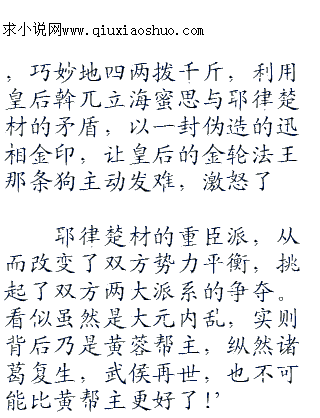 求小说网www.qiuxiaoshuo.com
，巧妙地四两拨千斤，利用
皇后斡兀立海蜜思与耶律楚
材的矛盾，以一封伪造的迅
相金印，让皇后的金轮法王
那条狗主动发难，激怒了
耶律楚材的重臣派，从
而改变了双方势力平衡，挑
起了双方两大派系的争夺。
看似虽然是大元内乱，实则
背后乃是黄蓉帮主，纵然诸
葛复生，武侯再世，也不可
能比黄帮主更好了！’